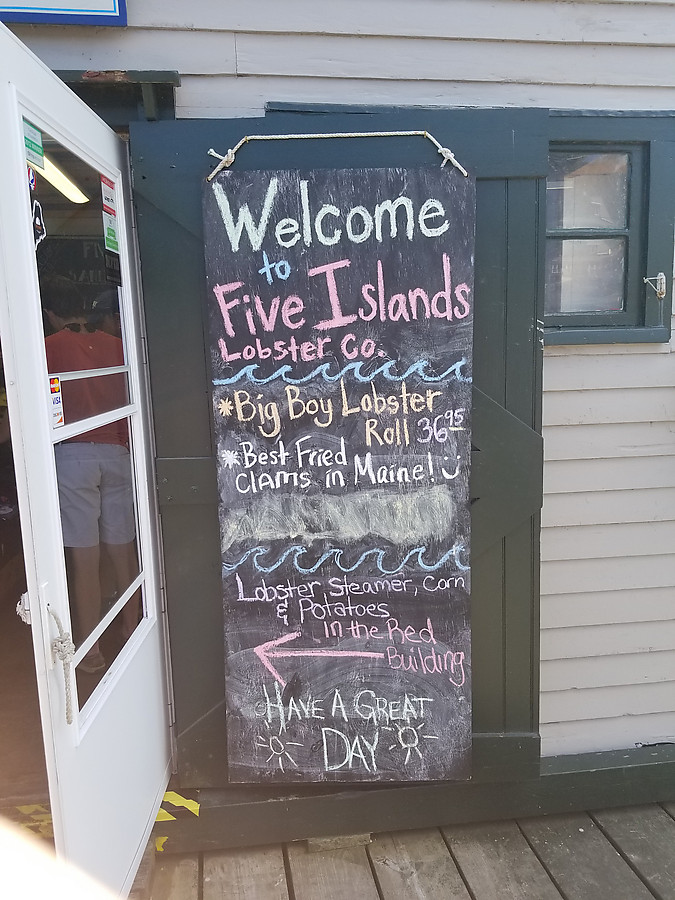 Welcome
to
Five Islands
Lobster Co.
*Big Boy Lobster
Roll 36.95
*Best Fried
Clams in Maine! :)
Lobster Steamer, Corn
& Potatoes
In the Red
Building
Have A Great
Day
VISA